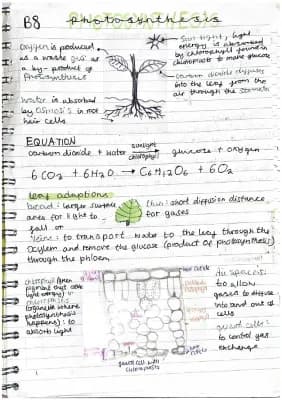 B8 photosynthesis
Oxygen is produced
as a waste gas as
a by-product of
Photosynthesis
Sun light; light
energy is absorbed
by chlorophyll found in
chloroplasts to make glucose
carbon dioxide diffuses
into the leaf from the
air through the stomata
Water is absorbed
by osmosis in root
hair cells
EQUATION
carbon dioxide + water sunlight chlorophyll glucose + oxygen
6CO2 + 6H2O → C6H12O6 + 6O2
leaf adaptions
broad: larger surface
area for light to
fall on
thin: short diffusion distance
for gases
Veins: to transport water to the leaf through the
xylem and remove the glucose (product of photosynthesis)
through the phloem
chlorophyll (green
pigment
light energy) in
chloroplasts
(organelle where
photosynthesis
happens): to
absorb light
air spaces:
to allow
gases to diffuse
into and out of
cells
guard cells:
to control gas
exchange
guard cell with
chloroplasts